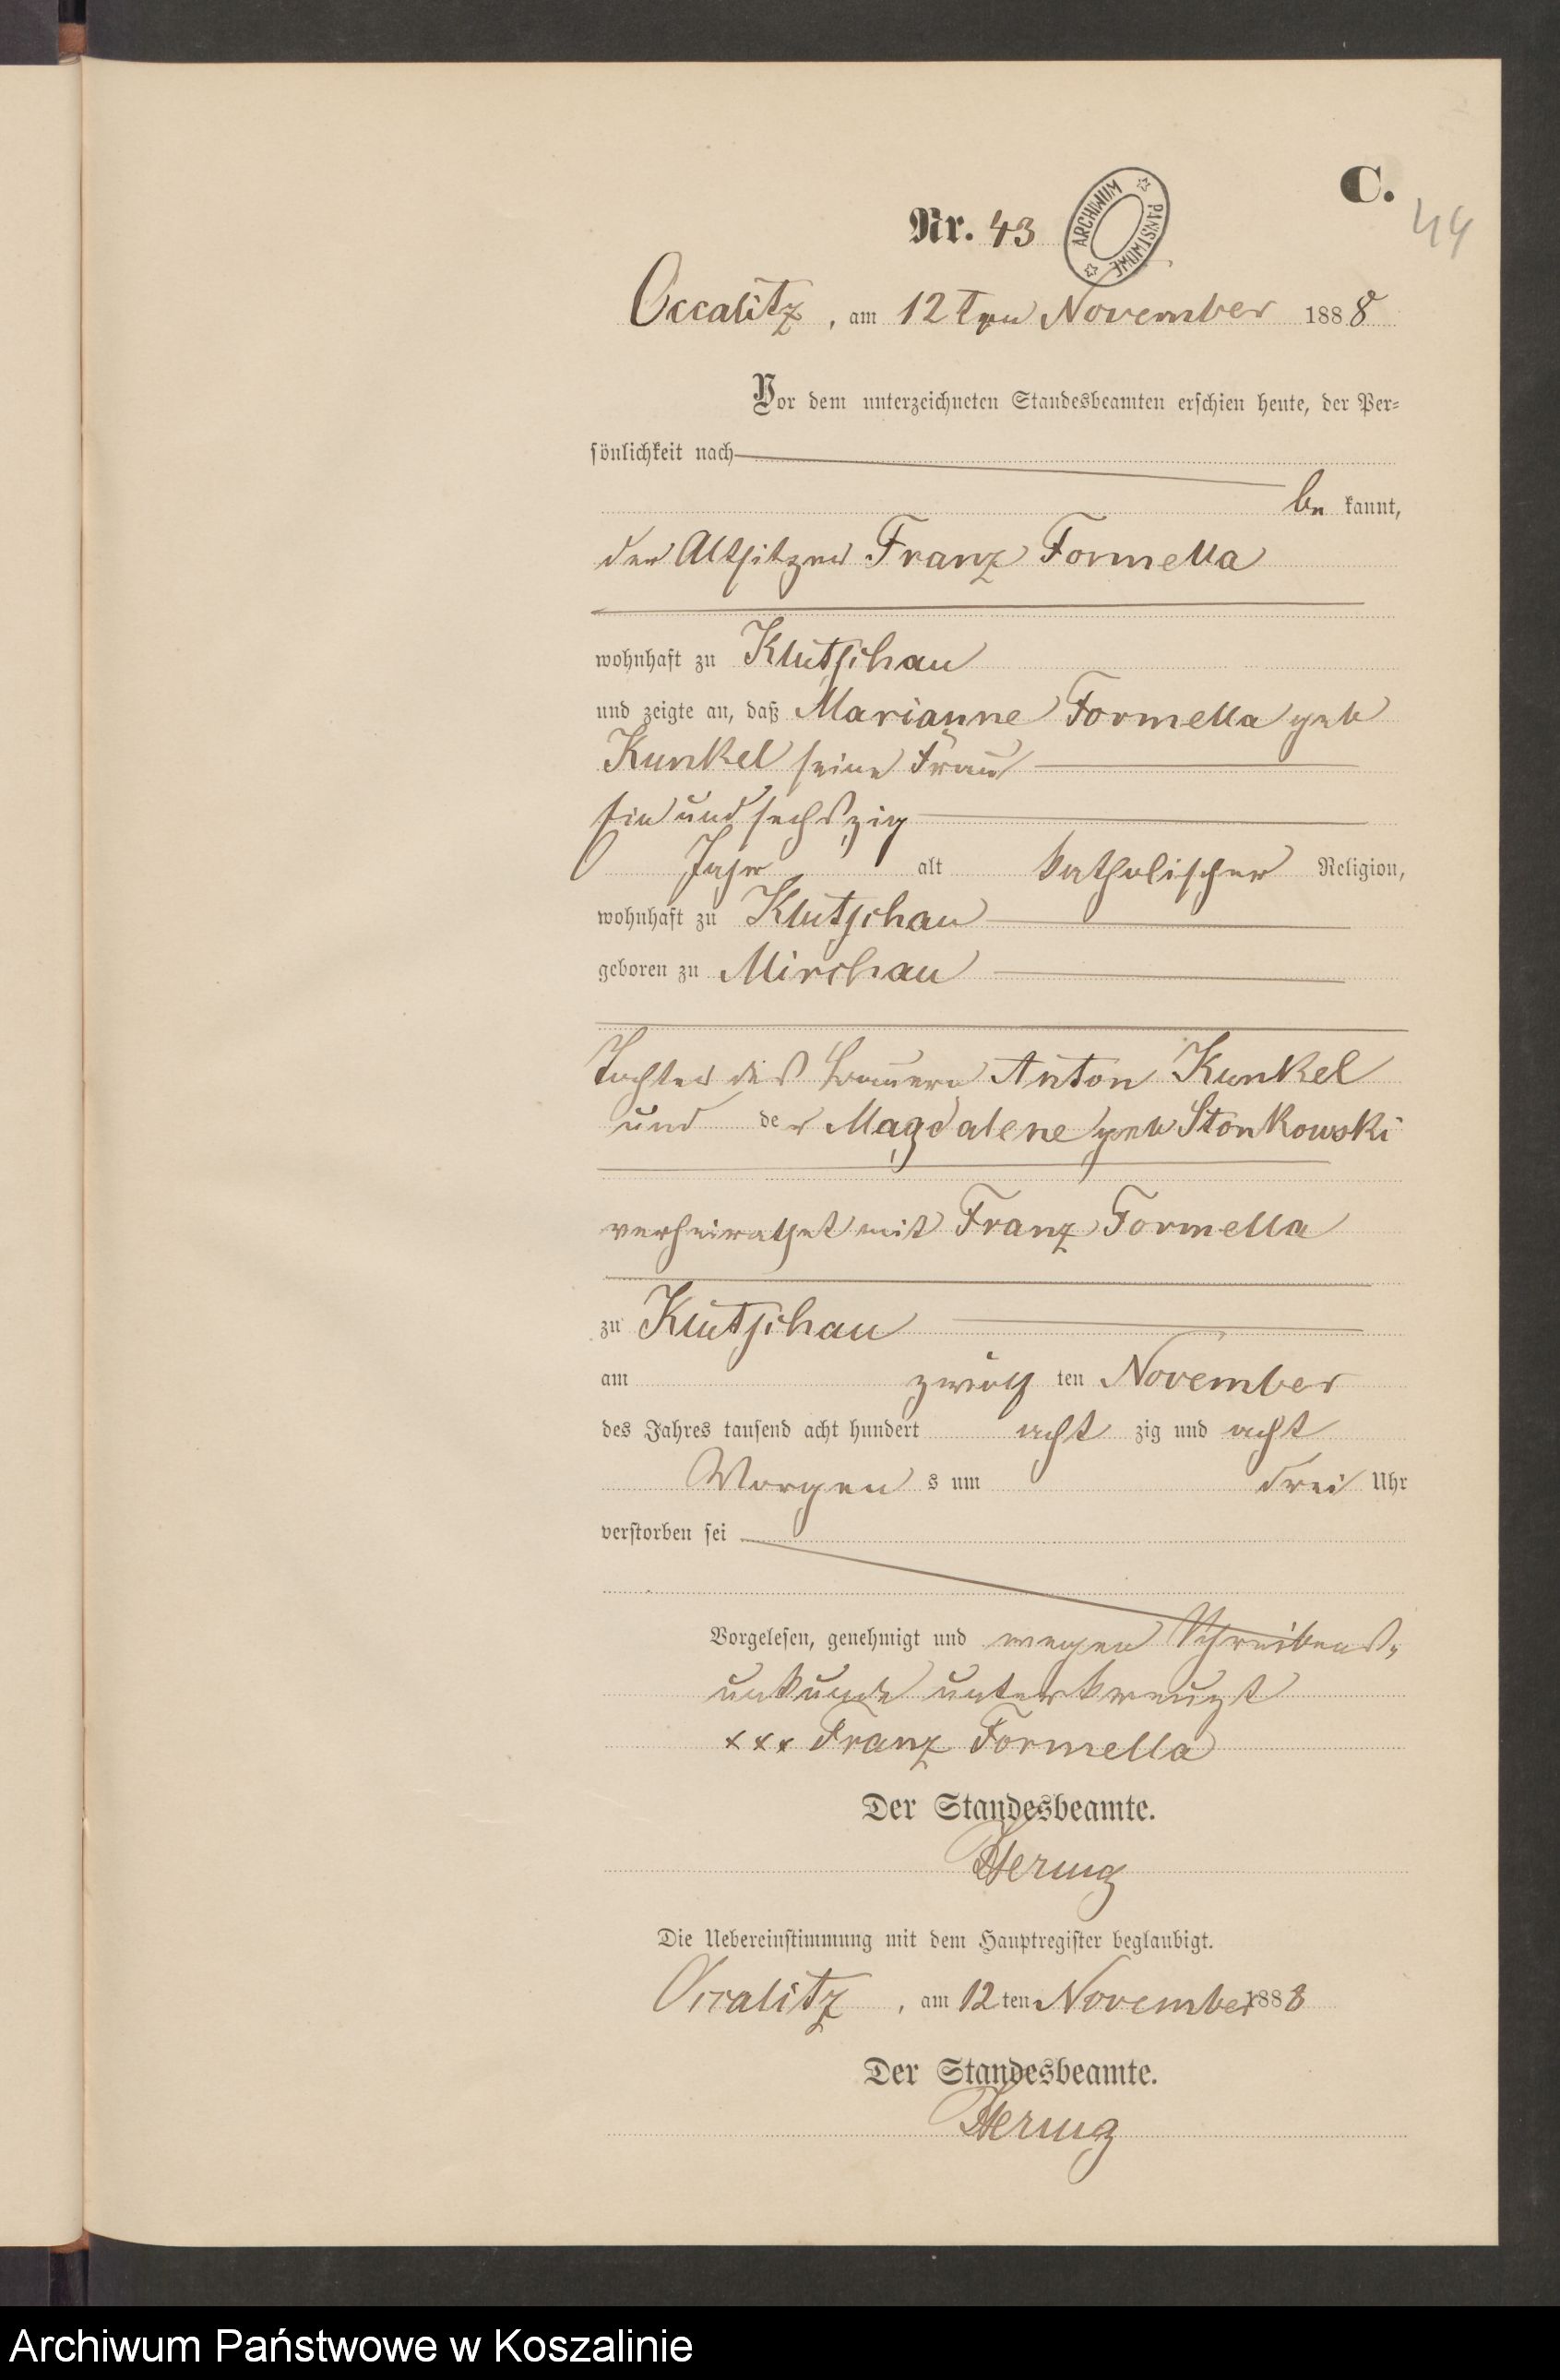 C.
44
Nr. 43
ARCHIWUM PAŃSTWOWE
Occalitz, am 12ten November 1888
Vor dem unterzeichneten Standesbeamten erschien heute, der Per=
sönlichkeit nach
be kannt,
der Altsitzer Franz Formella
wohnhaft zu Klutschau
und zeigte an, daß Marianne Formella geb
Kunkel seine Frau
Ein und sechszig
Jahr alt katholischer Religion,
wohnhaft zu Klutschau
geboren zu Mirchau
Tochter des Bauern Anton Kunkel
und der Magdalene geb Stonkowski
verheirathet mit Franz Formella
zu Klutschau
am zwölf ten November
des Jahres tausend acht hundert acht zig und acht
Morgen s um drei Uhr
verstorben sei
Vorgelesen, genehmigt und wegen Schreibens-
unkunde unterkreuzt
xxx Franz Formella
Der Standesbeamte.
Die Uebereinstimmung mit dem Hauptregister beglaubigt.
Occalitz, am 12 ten November 1888
Der Standesbeamte.
Archiwum Państwowe w Koszalinie